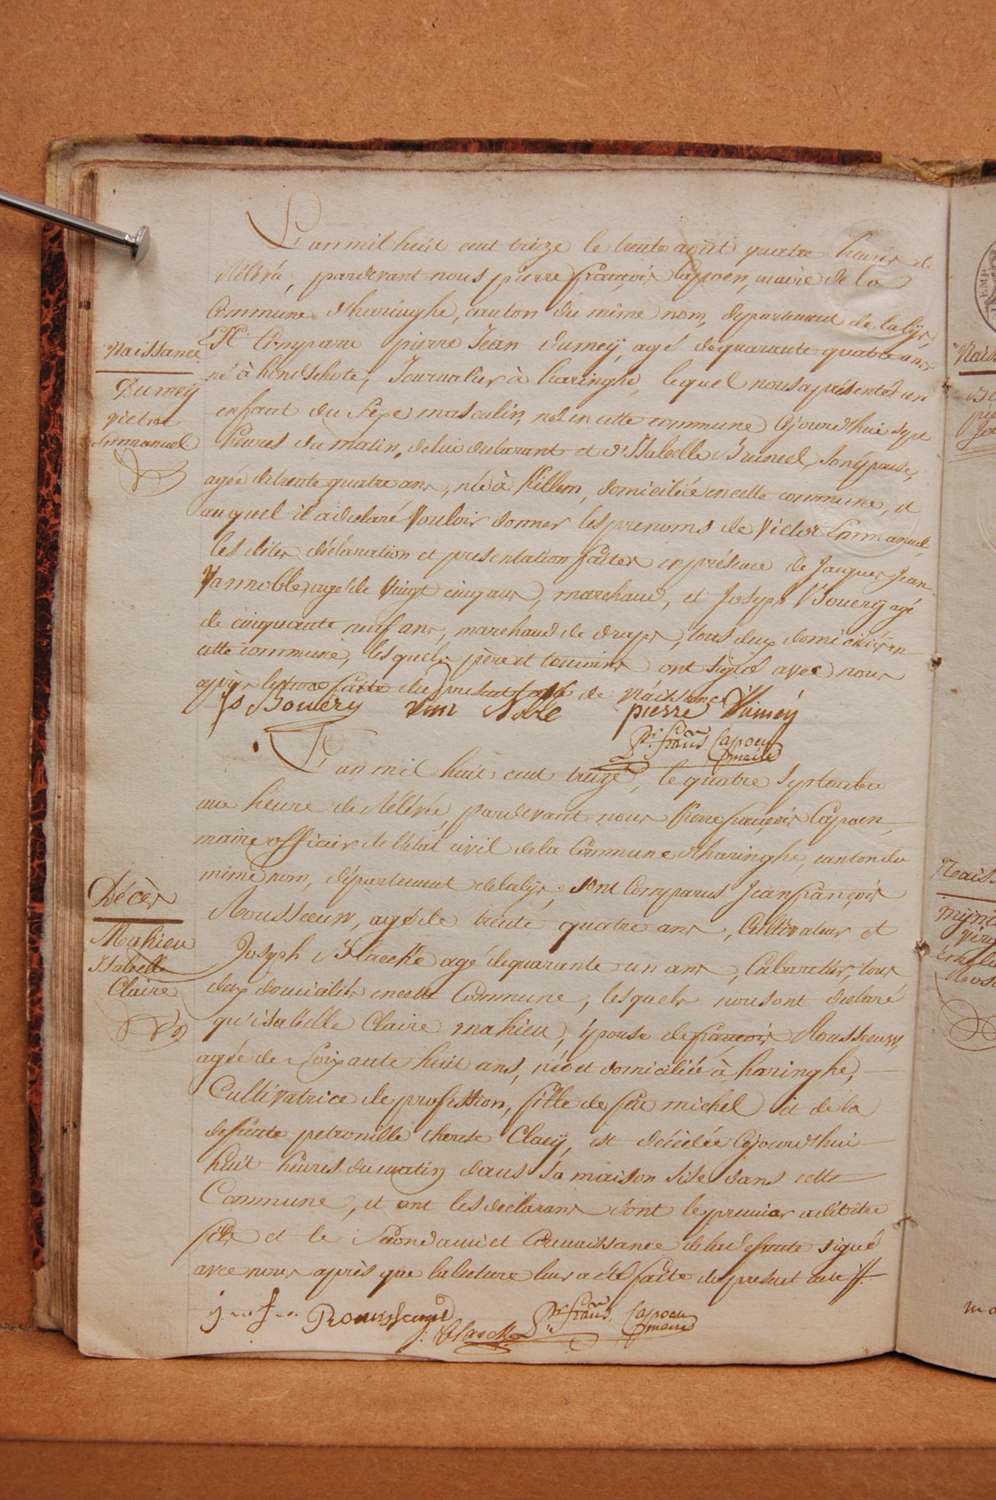 L'an mil huit cent treize le trente août quatre heures de
relevée, pardevant nous pierre françois Capoen, maire de la
Commune d'haringhe, canton du même nom, département de la lys,
Est Comparu pierre Jean Dumeÿ, agé de quarante quatre ans
né à hondschote, Journalier à haringhe, lequel nous a présenté un
Naissance
Dumeÿ
victor
Emmanuel
enfant du Sexe masculin, né en cette commune cejourd'hui sept
heures du matin, de lui declarant et d'Isabelle Bruneel, son épouse,
agée de trente quatre ans, née à Killem, domiciliée en cette commune, et
auquel il a déclaré Vouloir donner les prenoms de Victor Emmanuel,
les dites déclaration et presentation faites en présence de Jacques Jean
Vannoble, agé de Vingt cinq ans, marchand, et Joseph Bouery agé
de cinquante neuf ans, marchand de draps, tous deux domiciliés en
cette commune, lesquels père et temoins ont signé avec nous
après lecture faite du présent acte de naissance
Js Bouery van Noble pierre Dumeÿ
Pre franç Capoen
maire
L'an mil huit cent treize, le quatre Septembre
une heure de relevée, pardevant nous Pierre françois Capoen,
maire officier de l'état civil de la Commune d'haringhe, canton du
même nom, département de la lys, sont Comparus Jean françois
Décès
Mahieu
Isabelle
Claire
Rousseeuw, agé de trente quatre ans, Cultivateur et
Joseph Vlaecke agé de quarante un ans, Cabaretier, tous
deux domiciliés en cette Commune, lesquels nous ont déclaré
qu'isabelle Claire mahieu, épouse de françois Rousseeuw,
agée de Soixante huit ans, née et domiciliée à haringhe,
Cultivatrice de profession, fille de feu michel et de la
defunte petronille therese Claeÿ, est décédée cejourd'hui
huit heures du matin dans sa maison sise dans cette
Commune, et ont les declarans dont le premier a dit être
fils et le Second ami et Connaissance de la defunte signé
avec nous après que lecture leur a été faite du présent acte
Rousseeuw
J. Vlaecke Pre franç Capoen
maire